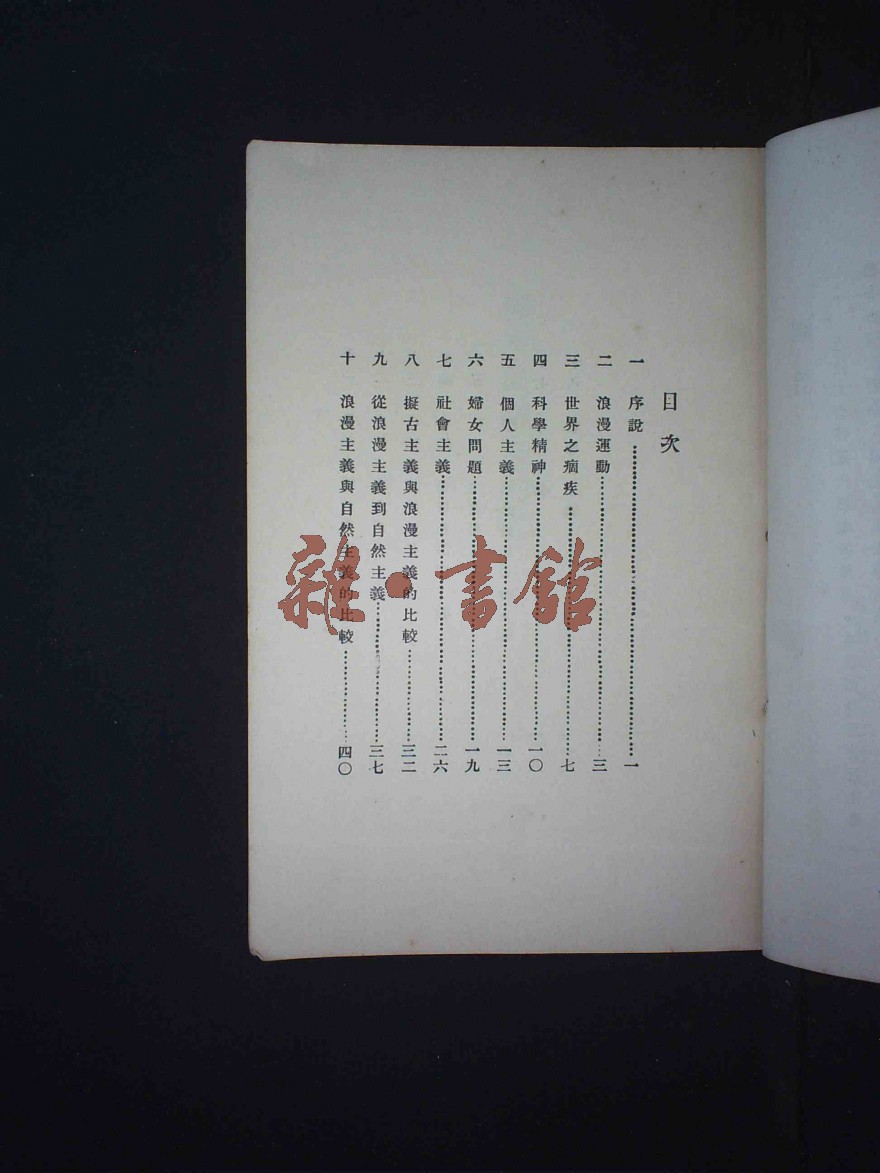 目次
一 序說……一
二 浪漫運動……三
三 世界之痼疾……七
四 科學精神……一〇
五 個人主義……一三
六 婦女問題……一九
七 社會主義……二六
八 擬古主義與浪漫主義的比較……三二
九 從浪漫主義到自然主義……三七
十 浪漫主義與自然主義的比較……四〇
雜·書館